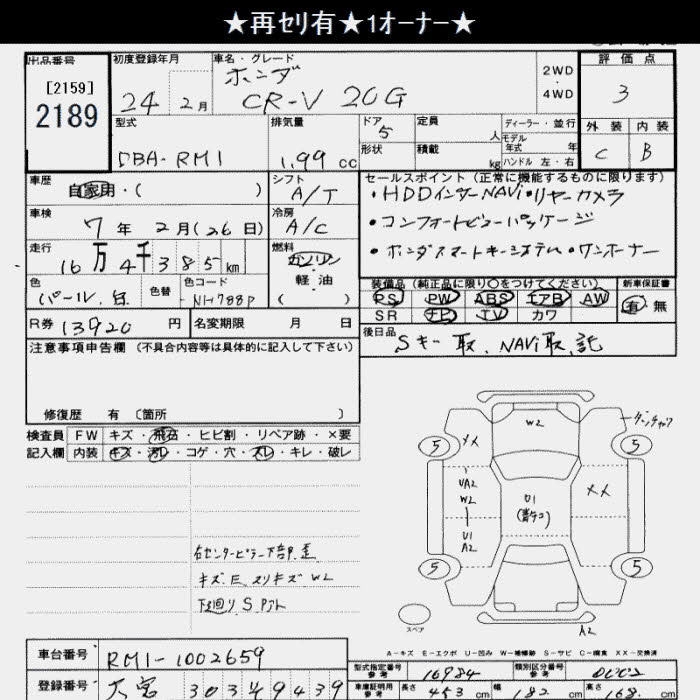 ★再セリ有★1オーナー★
出品番号 初度登録年月 車名・グレード 評価点
[2159]
2189
24 2月 ホンダ CR-V 20G
2WD・4WD
3
外装 内装
C B
型式 排気量 ドア 定員 人 ディーラー・並行
DBA-RM1 1.99cc 5
形状 積載 kg モデル年式 年
ハンドル 左・右
車歴 シフト セールスポイント(正常に機能するものに限ります)
自家用・( ) A/T ・HDDインターNAVi・リヤーカメラ
車検 冷房
7年 2月(26日) A/C ・コンフォートビューパッケージ
走行 燃料 ・ホンダスマートキーシステム・ワンオーナー
16万4千385km ガソリン・軽油( )
色 色替 色コード 装備品(純正品に限り○をつけてください) 新車保証書
パール.白 NH788P PS PW ABS エアB AW 有・無
SR ナビ TV カワ
R券 13920円 名変期限 月 日 後日品
Sキー取、NAVi取、記
注意事項申告欄(不具合内容等は具体的に記入して下さい)
修復歴 有〔箇所 〕
検査員 FW キズ・飛石・ヒビ割・リペア跡・×要
記入欄 内装 キズ・汚レ・コゲ・穴・スレ・キレ・破レ
W2
XX
5 5
UA2
W2
U1
XX
U1
A2
5 5
スペア
A2
右センターピラー下部歪
キズ E スリキズ W2
下廻り S
A-キズ E-エクボ U-凹み W-補修跡 S-サビ C-腐食 XX-交換済
車台番号 RM1-1002659
型式指定番号参考 16984 類別区分番号参考 0002
登録番号 大宮 303 49439
車庫証明用参考 長さ 453cm 幅 182cm 高さ 168cm